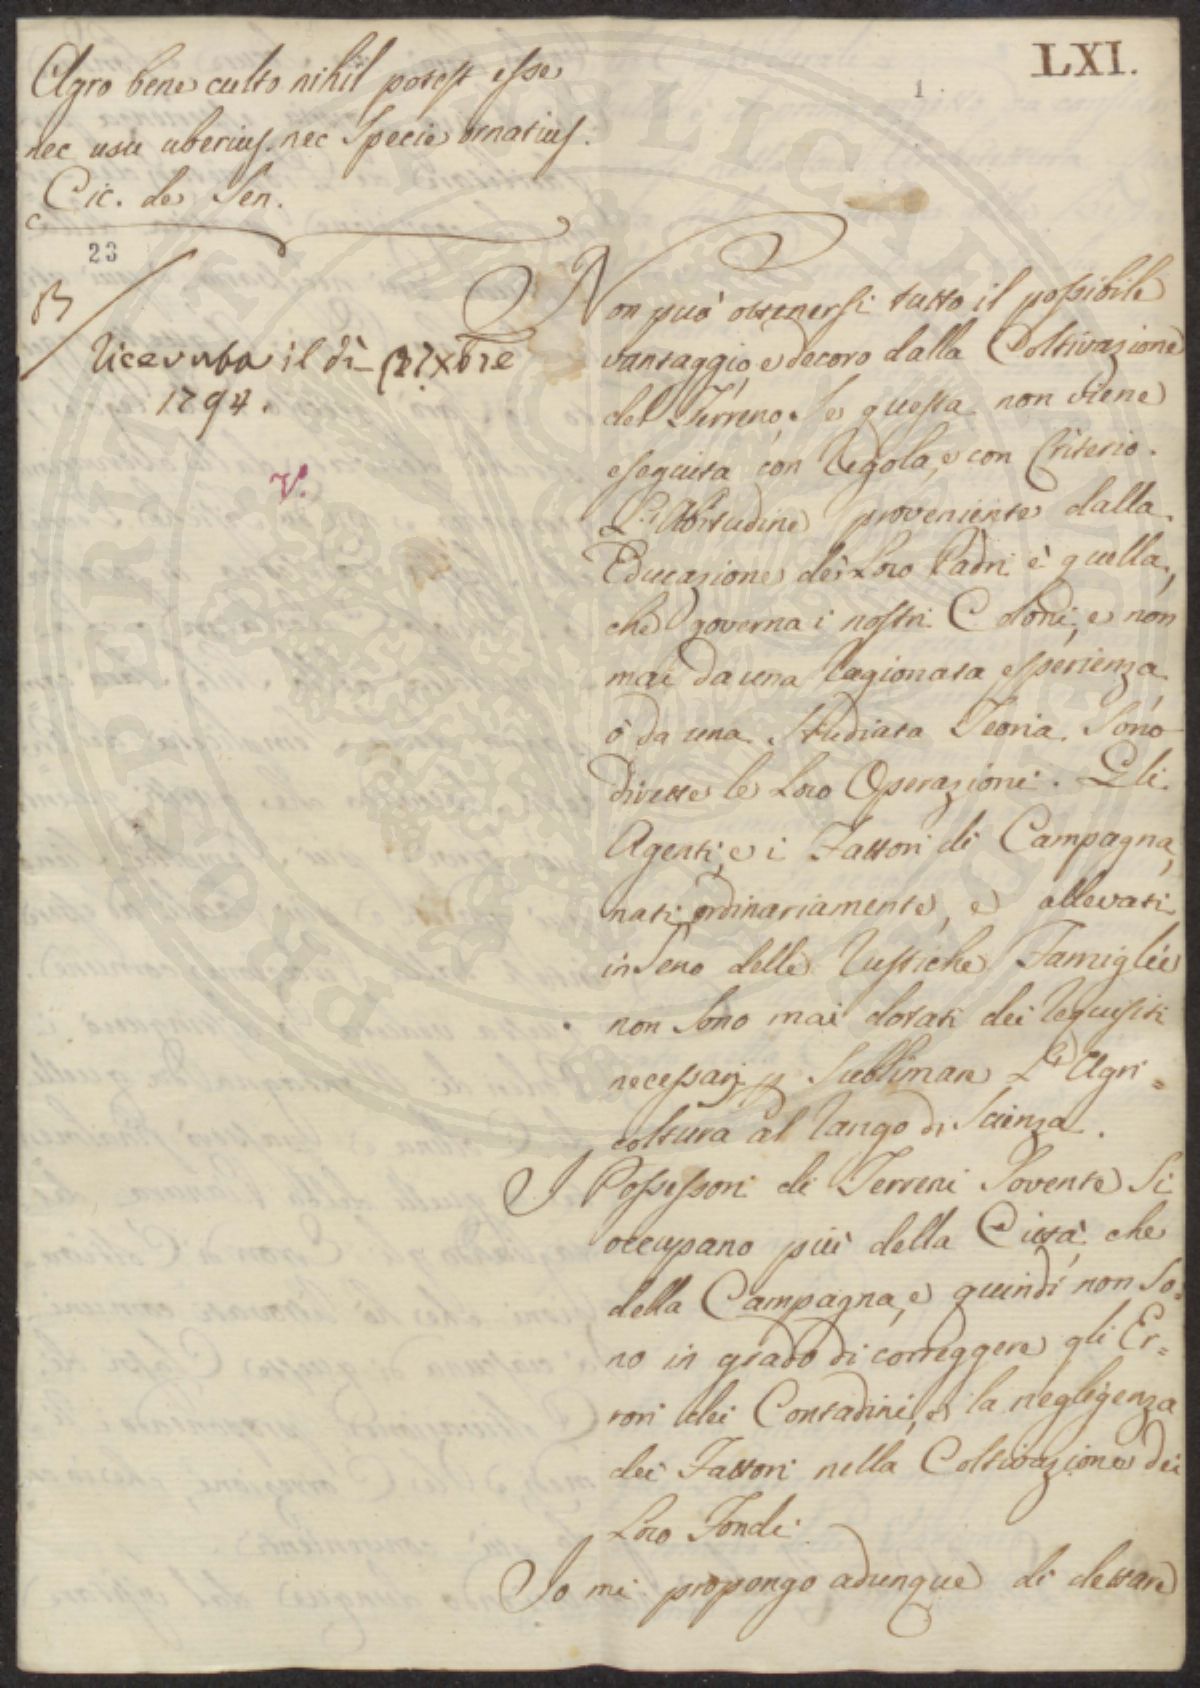 LXI.
1.
Agro bene culto nihil potest esse
nec usu uberius, nec Specie ornatius.
Cic. de Sen.
23
B
Ricevuta il dì 27 Xbre
1794.
V.
Non può ottenersi tutto il possibile
vantaggio e decoro dalla Coltivazione
del Terreno. Se questa non viene
eseguita con Regola, e con Criterio.
L'Abitudine proveniente dalla
Educazione dei Loro Padri è quella,
che governa i nostri Coloni, e non
mai da una ragionata esperienza
ò da una Studiata Teoria. Sono
dirette le Loro Operazioni. Gli
Agenti, e i Fattori di Campagna,
nati ordinariamente, e allevati
in Seno delle Rustiche Famiglie
non Sono mai dotati dei Requisiti
necessarj p Sublimare L'Agri=
coltura al Rango di Scienza.
I Possessori di Terreni Sovente Si
occupano più della Città, che
della Campagna, e quindi non So=
no in grado di correggere gli Er=
rori dei Contadini, e la negligenza
dei Fattori nella Coltivazione dei
Loro Fondi.
Io mi propongo adunque di dettare
PROSPERITATI PUBLICAE AUGENDAE